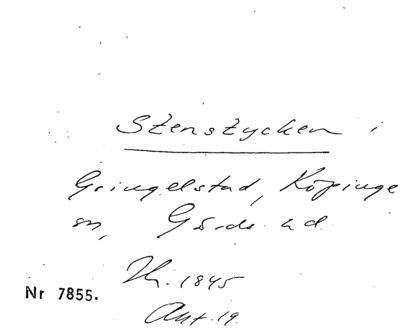 Stenstycken i
Gringelstad, Köpinge
sn, Gärds hd
Th. 1845
Akt. 19.
Nr 7855.